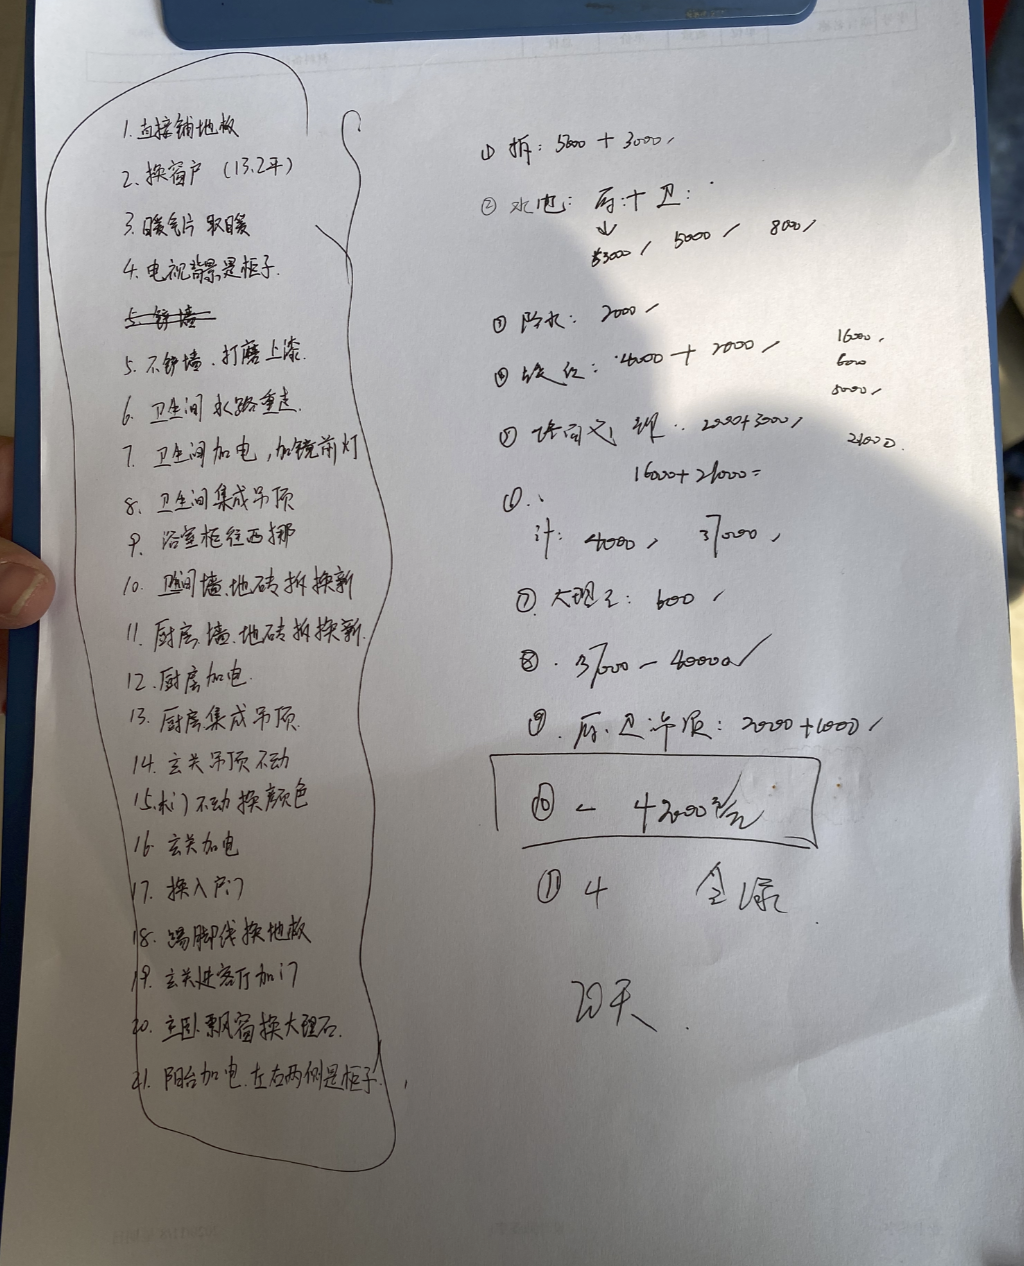 1. 直接铺地板
2. 换窗户 (13.2平)
3. 暖气片 取暖
4. 电视背景是柜子.
5. 铲墙
5. 不铲墙. 打磨上漆.
6. 卫生间 水路重走.
7. 卫生间加电, 加镜前灯
8. 卫生间集成吊顶
9. 浴室柜往西挪
10. 卫生间墙.地砖拆换新
11. 厨房.墙.地砖拆换新.
12. 厨房加电.
13. 厨房集成吊顶.
14. 玄关吊顶不动
15. 木门不动换颜色
16. 玄关加电
17. 换入户门
18. 踢脚线换地板
19. 玄关进客厅加门
20. 主卧.飘窗换大理石.
21. 阳台加电.左右两侧是柜子.
① 拆: 5000 + 3000
② 水电: 厨 + 卫:
3000 5000 8000
③ 防水: 2000
④ : 4000 + 2000
16000
6000
5000
⑤ 2000+3000
21000
16000+21000=
⑥
计: 4000, 37000
⑦ 大理石: 600
⑧. 37000-40000
⑨. 厨.卫吊顶: 2000+1000
⑩ 42000元
⑪ 4
20天.